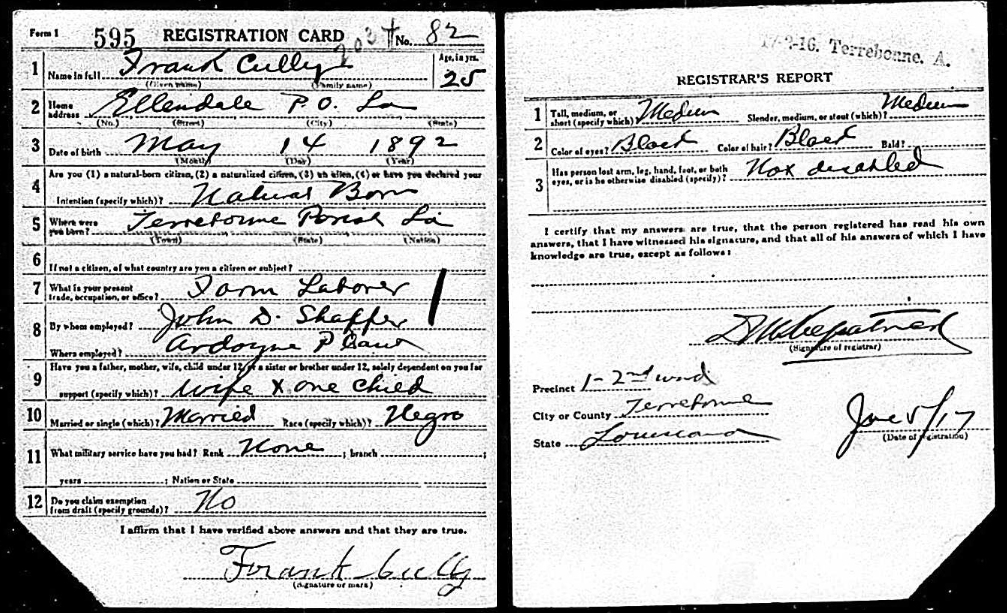 Form 1 595 REGISTRATION CARD No. 82
1 Name in full Frank Cully Age, in yrs. 25
(Given name) (Family name)
2 Home address Ellendale P.O. La
(No.) (Street) (City) (State)
3 Date of birth May 14 1892
(Month) (Day) (Year)
Are you (1) a natural-born citizen, (2) a naturalized citizen, (3) an alien, (4) or have you declared your
4 intention (specify which)? Natural Born
5 Where were you born? Terrebonne Parish La
(Town) (State) (Nation)
6 If not a citizen, of what country are you a citizen or subject?
7 What is your present trade, occupation, or office? Farm Laborer
8 By whom employed? John D. Shaffer
Where employed? Ardoyne
9 Have you a father, mother, wife, child under 12, or a sister or brother under 12, solely dependent on you for
support (specify which)? Wife & one Child
10 Married or single (which)? Married Race (specify which)? Negro
11 What military service have you had? Rank None ; branch ;
years ; Nation or State
12 Do you claim exemption from draft (specify grounds)? No
I affirm that I have verified above answers and that they are true.
Frank Cully
(Signature or mark)
17-2-16. Terrebonne. A.
REGISTRAR'S REPORT
1 Tall, medium, or short (specify which)? Medium Slender, medium, or stout (which)? Medium
2 Color of eyes? Black Color of hair? Black Bald?
3 Has person lost arm, leg, hand, foot, or both eyes, or is he otherwise disabled (specify)? Not disabled
I certify that my answers are true, that the person registered has read his own
answers, that I have witnessed his signature, and that all of his answers of which I have
knowledge are true, except as follows:
(Signature of registrar)
Precinct 1-2nd ward
City or County Terrebonne
State Louisiana
June 5/17
(Date of registration)